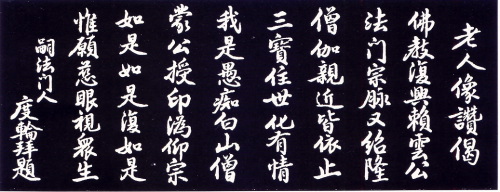 老人像讚偈
佛教復興賴雲公
法门宗脉又紹隆
僧伽親近皆依止
三寳住世化有情
我是愚痴白山僧
蒙公授印溈仰宗
如是如是復如是
惟願慈眼視眾生
嗣法门人
度輪拜題